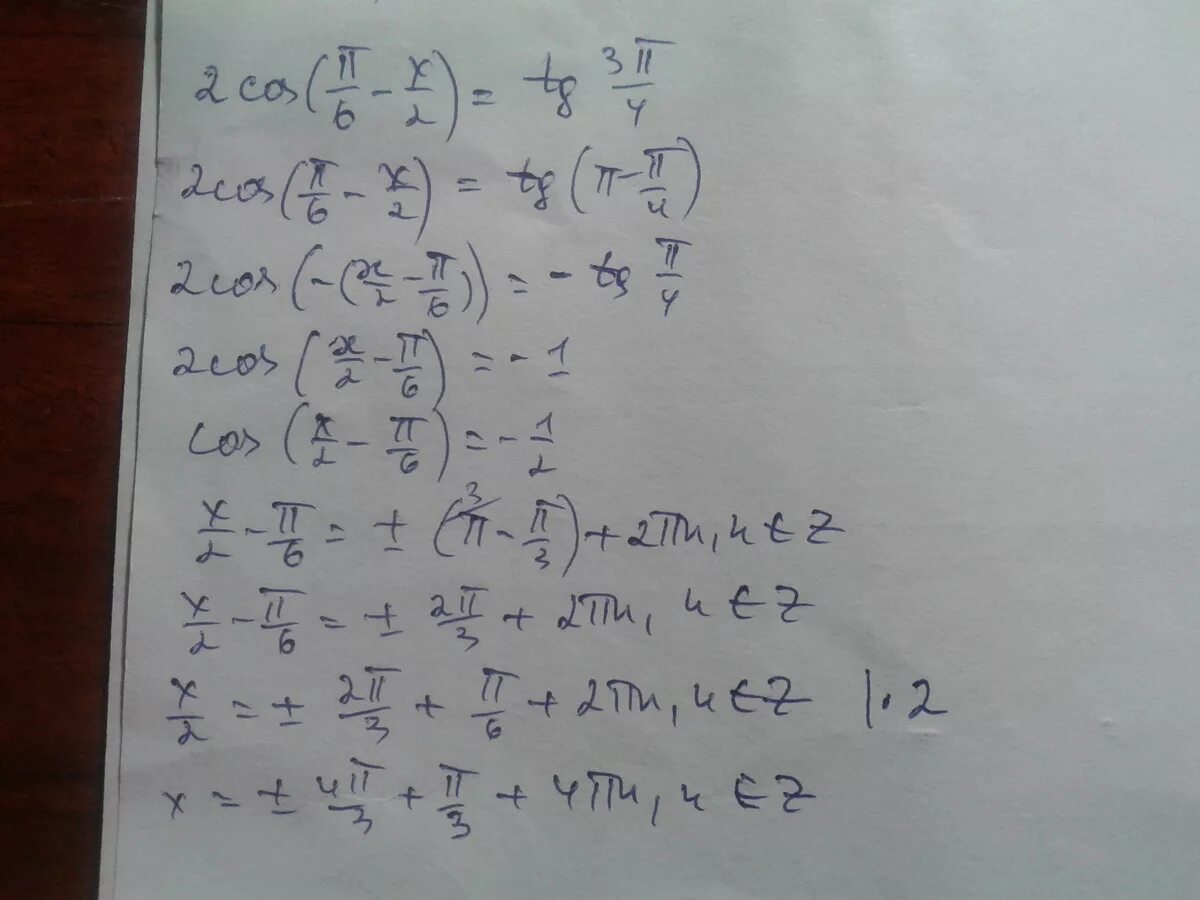 2cos(π/6 - x/2) = tg 3π/4
2cos(π/6 - x/2) = tg(π - π/4)
2cos(-(x/2 - π/6)) = - tg π/4
2cos(x/2 - π/6) = - 1
cos(x/2 - π/6) = - 1/2
x/2 - π/6 = ± (3/π - π/3) + 2πn, n ∈ Z
x/2 - π/6 = ± 2π/3 + 2πn, n ∈ Z
x/2 = ± 2π/3 + π/6 + 2πn, n ∈ Z |·2
x = ± 4π/3 + π/3 + 4πn, n ∈ Z